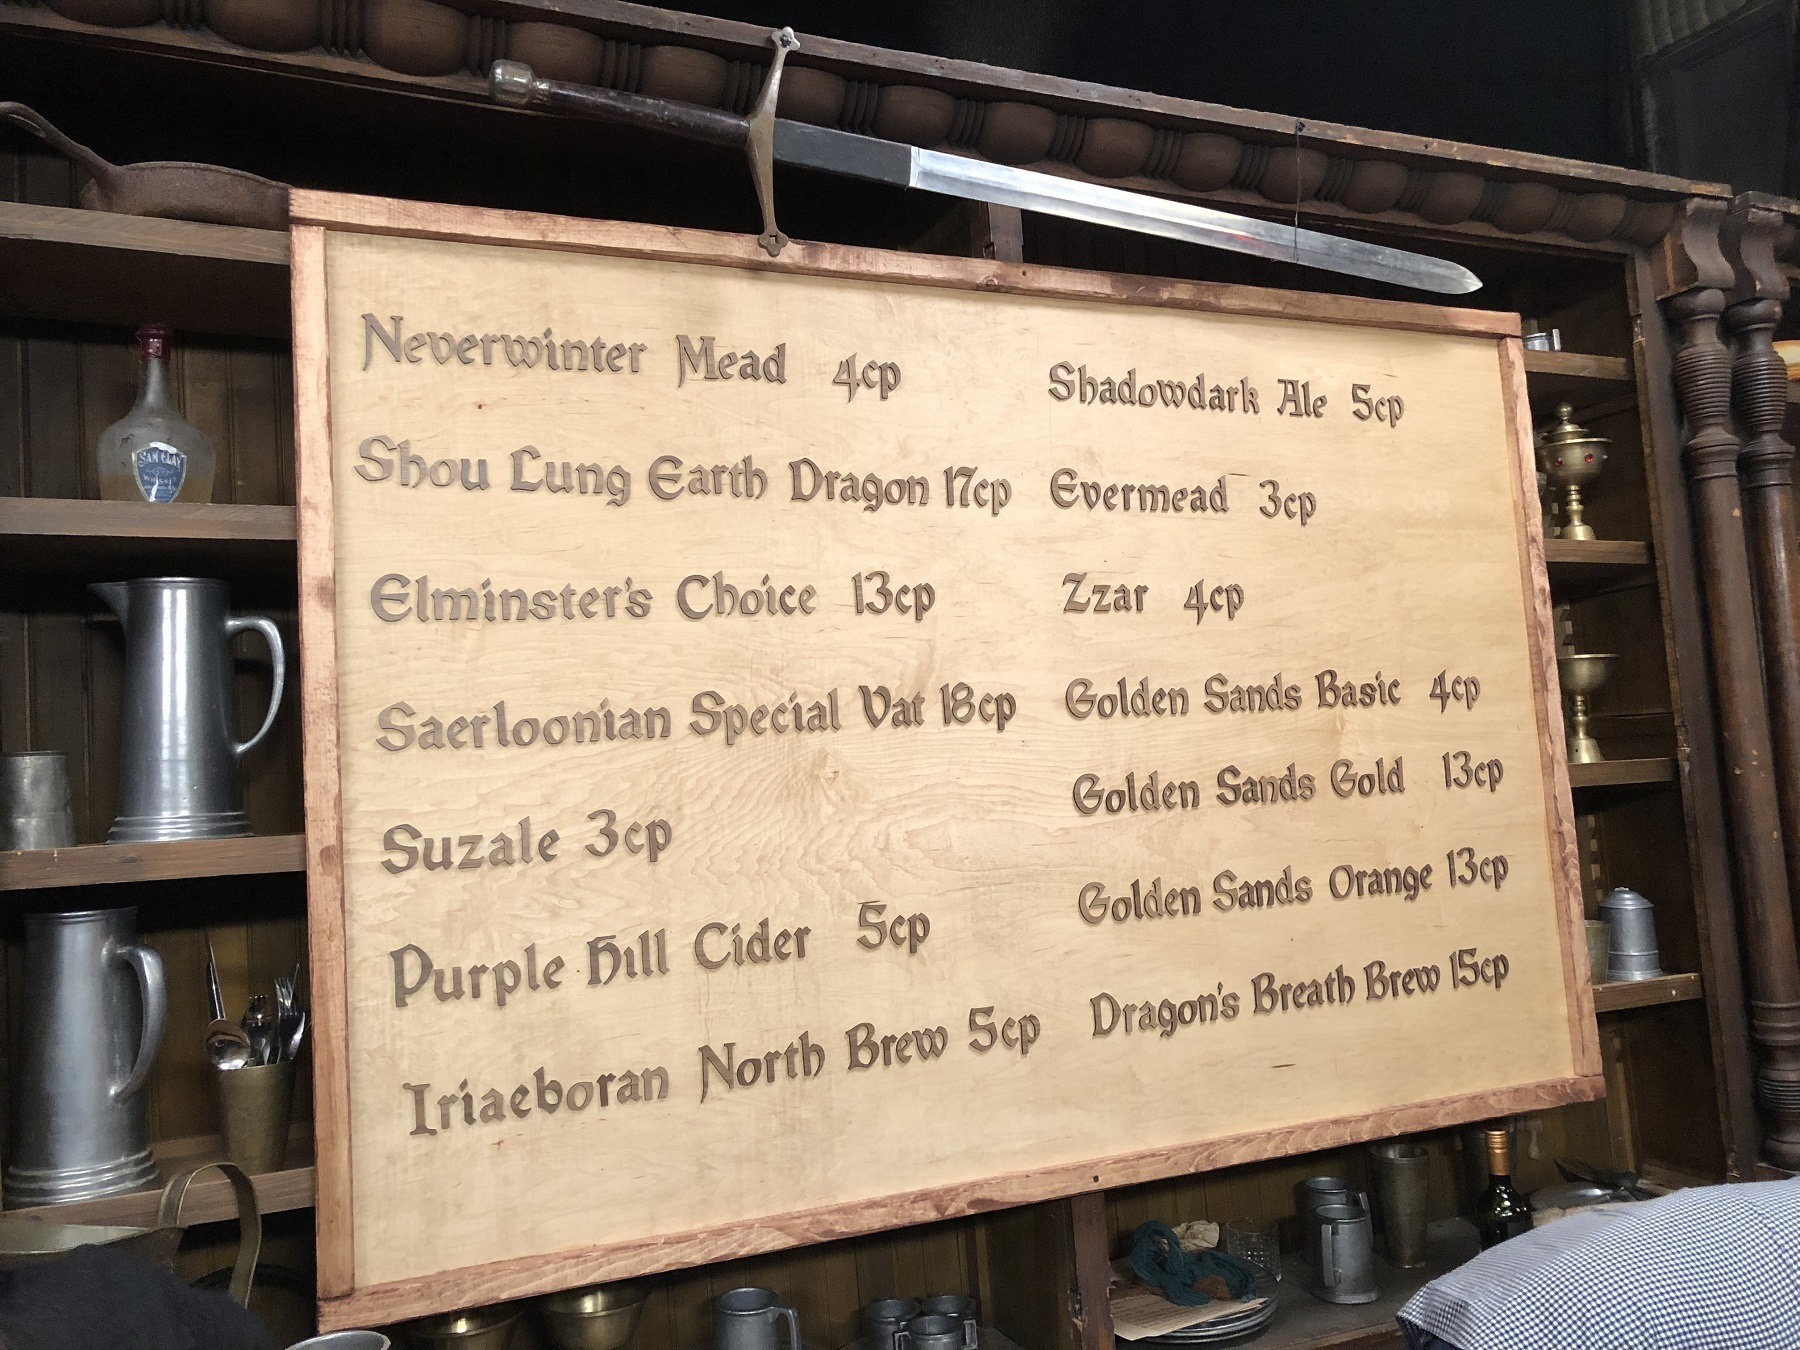 Neverwinter Mead 4cp
Shou Lung Earth Dragon 17cp
Elminster's Choice 13cp
Saerloonian Special Vat 18cp
Suzale 3cp
Purple Hill Cider 5cp
Iriaeboran North Brew 5cp
Shadowdark Ale 5cp
Evermead 3cp
Zzar 4cp
Golden Sands Basic 4cp
Golden Sands Gold 13cp
Golden Sands Orange 13cp
Dragon's Breath Brew 15cp
SAM CLAY
WHISKEY